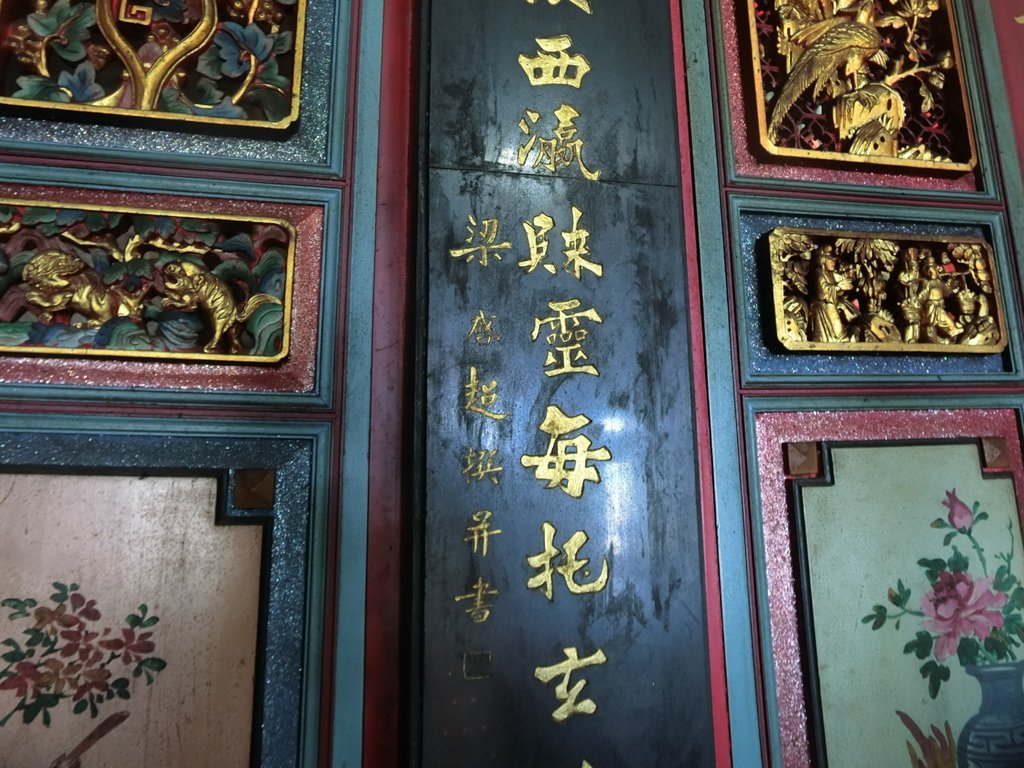 西瀛靈每托玄
梁啟超撰并書